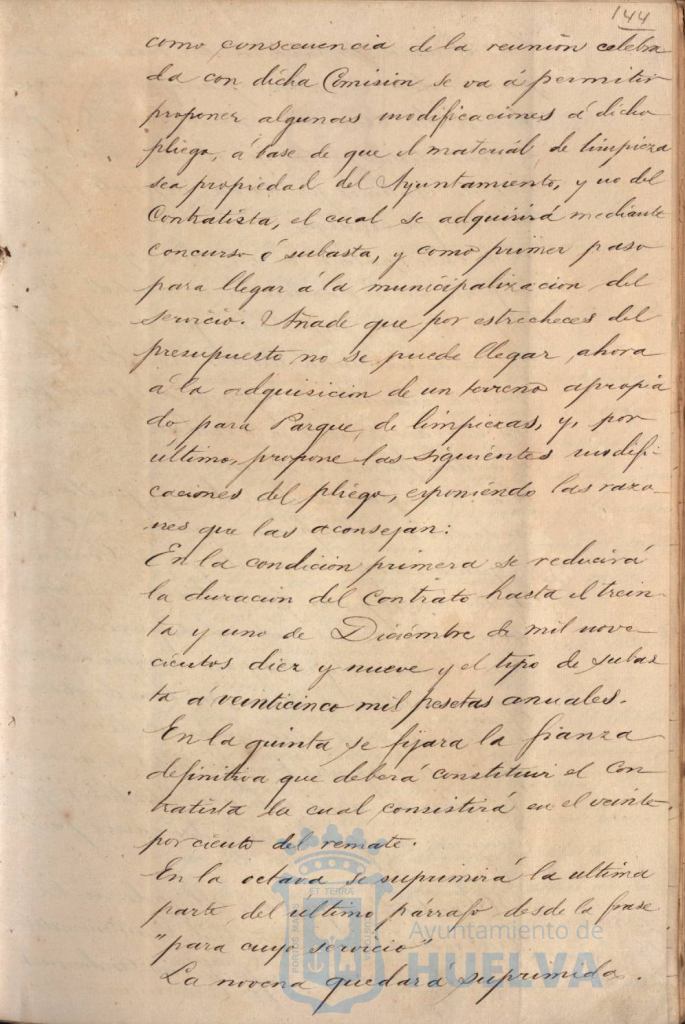 144
como consecuencia de la reunión celebra
da con dicha Comision se va á permitir
proponer algunas modificaciones á dicho
pliego, á base de que el material de limpieza
sea propiedad del Ayuntamiento, y no del
Contratista, el cual se adquirirá mediante
concurso ó subasta, y como primer paso
para llegar á la municipalizacion del
servicio. Añade que por estrecheces del
presupuesto no se puede llegar ahora
á la adquisicion de un terreno apropia
do para Parque de limpiezas, y, por
último, propone las siguientes modifi-
caciones del pliego, exponiendo las razo-
nes que las aconsejan:
En la condición primera se reducirá
la duracion del Contrato hasta el trein-
ta y uno de Diciembre de mil nove-
cientos diez y nueve y el tipo de subas
ta á veinticinco mil pesetas anuales.
En la quinta se fijara la fianza
definitiva que deberá constituir el Con
tratista la cual consistirá en el veinte
por ciento del remate.
En la octava se suprimirá la ultima
parte del ultimo párrafo desde la frase
"para cuyo servicio"
La novena quedará suprimida.
ET TERRA
Ayuntamiento de
HUELVA